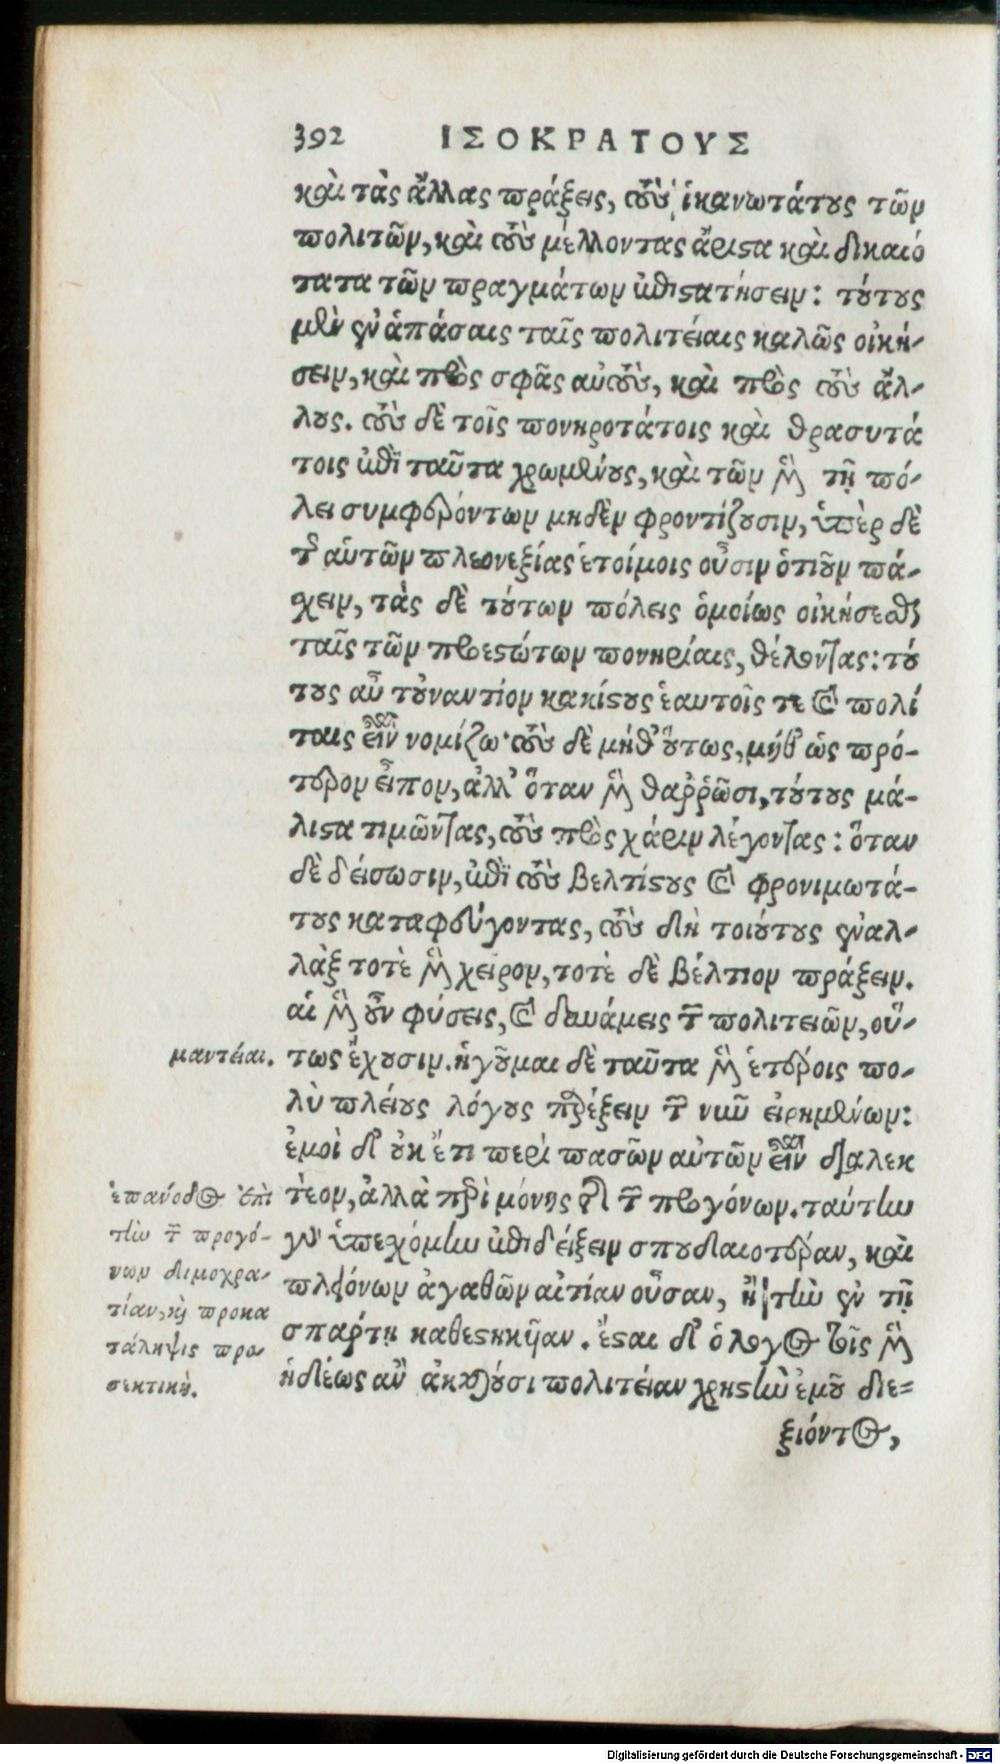 392 ΙΣΟΚΡΑΤΟΥΣ
καὶ τὰς ἄλλας πράξεις, τοὺς ἱκανωτάτους τῶν
πολιτῶν, καὶ τοὺς μέλλοντας ἄριστα καὶ δικαιό
τατα τῶν πραγμάτων ἐπιστατήσειν: τούτους
μὲν ἐν ἁπάσαις ταῖς πολιτείαις καλῶς οἰκή-
σειν, καὶ πρὸς σφᾶς αὐτοὺς, καὶ πρὸς τοὺς ἄλ-
λους. τοὺς δὲ τοῖς πονηροτάτοις καὶ θρασυτά
τοις ἐπὶ ταῦτα χρωμένους, καὶ τῶν μὲν τῇ πό-
λει συμφερόντων μηδὲν φροντίζουσιν, ὑπὲρ δὲ
τῆς αὑτῶν πλεονεξίας ἑτοίμοις οὖσιν ὁτιοῦν πά-
χειν, τὰς δὲ τούτων πόλεις ὁμοίως οἰκήσεσθαι
ταῖς τῶν προεστώτων πονηρίαις, θέλοντας: τού
τους αὖ τοὐναντίον κακίστους ἑαυτοῖς τε καὶ πολί
ταις εἶναι νομίζω· τοὺς δὲ μήθ' οὕτως, μήθ' ὡς πρό-
τερον εἶπον, ἀλλ' ὅταν μὲν θαῤῥῶσι, τούτους μά-
λιστα τιμῶντας, τοὺς πρὸς χάριν λέγοντας: ὅταν
δὲ δείσωσιν, ἐπὶ τοὺς βελτίστους καὶ φρονιμωτά-
τους καταφεύγοντας, τοὺς δὴ τοιούτους ἐναλ-
λὰξ τοτὲ μὲν χεῖρον, τοτὲ δὲ βέλτιον πράξειν.
αἱ μὲν οὖν φύσεις, καὶ δυνάμεις τῶν πολιτειῶν, οὕ-
μαντεῖαι. τως ἔχουσιν. ἡγοῦμαι δὲ ταῦτα μὲν ἑτέροις πο-
λὺ πλείους λόγους παρέξειν τῶν νῦν εἰρημένων:
ἐμοὶ δ' οὐκ ἔτι περὶ πασῶν αὐτῶν εἶναι διαλεκ
τέον, ἀλλὰ περὶ μόνης τῆς τῶν προγόνων. ταύτην
γὰρ ὑπεχόμην ἐπιδείξειν σπουδαιοτέραν, καὶ
πλειόνων ἀγαθῶν αἰτίαν οὖσαν, ἢ τὴν ἐν τῇ
σπάρτῃ καθεστηκυῖαν. ἔσται δ' ὁ λόγος τοῖς μὲν
ἡδέως ἂν ἀκούουσι πολιτείαν χρηστὴν ἐμοῦ διε=
ξιόντος,
ἐπανόδος ἐπὶ
τὴν τῶν προγό-
νων δημοκρα-
τίαν, καὶ προκα
τάληψις προ-
σεκτική.
Digitalisierung gefördert durch die Deutsche Forschungsgemeinschaft - DFG